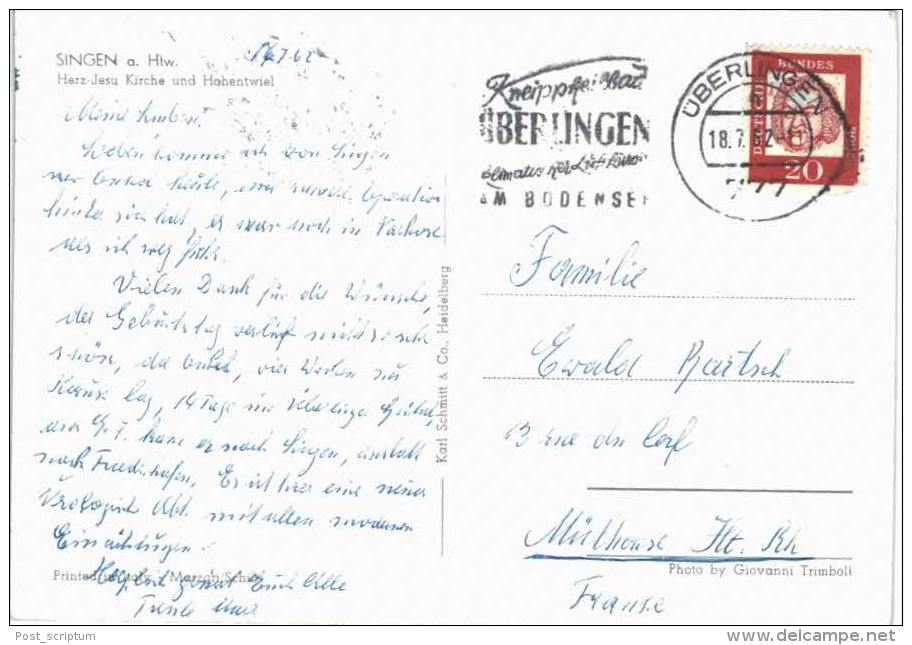 SINGEN a. Htw.
Herz-Jesu Kirche und Hohentwiel
17.7.62
Meine Lieben.
Soeben komme ich von Singen
wo Onkel heute, eine Operation
hinter sich hat, er war noch in Narkose
als ich weg
Vielen Dank für die Wünsche,
der Geburtstag verlief nicht so sehr
schön, da Onkel, vier Wochen zu
Hause lag, 14 Tage im
am 9.7. kam er nach Singen, anstatt
nach Friedrichshafen, Es ist hier eine neue
Urologische Abt. mit allen modernen
Einrichtungen.
Herzlich grüsst Euch Alle
Tante
Printed in Italy
Karl Schmitt & Co., Heidelberg
Kneippheilbad
ÜBERLINGEN
AM BODENSEE
ÜBERLINGEN
18.7.62
DEUTSCHE BUNDESPOST
20
Familie
Ewald Bartsch
13 rue du Cerf
Mülhouse Ht. Rh
France
Photo by Giovanni Trimboli
Post_scriptum
www.delcampe.net